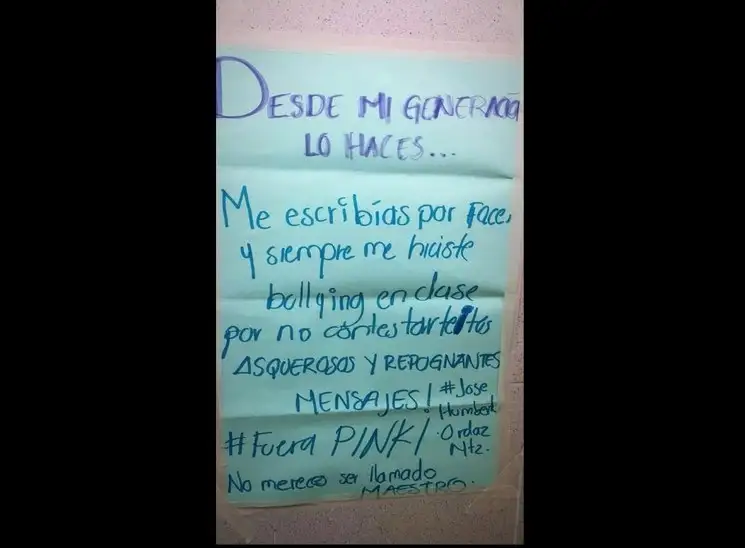 DESDE MI GENERACIÓN
LO HACES...
Me escribías por Face,
y siempre me hiciste
bollying en clase
por no contestarte tus
ASQUEROSOS Y REPOGNANTES
MENSAJES! #Jose
Humbert
#Fuera PINKI Ordaz
Ntz.
No mereces ser llamado
MAESTRO.